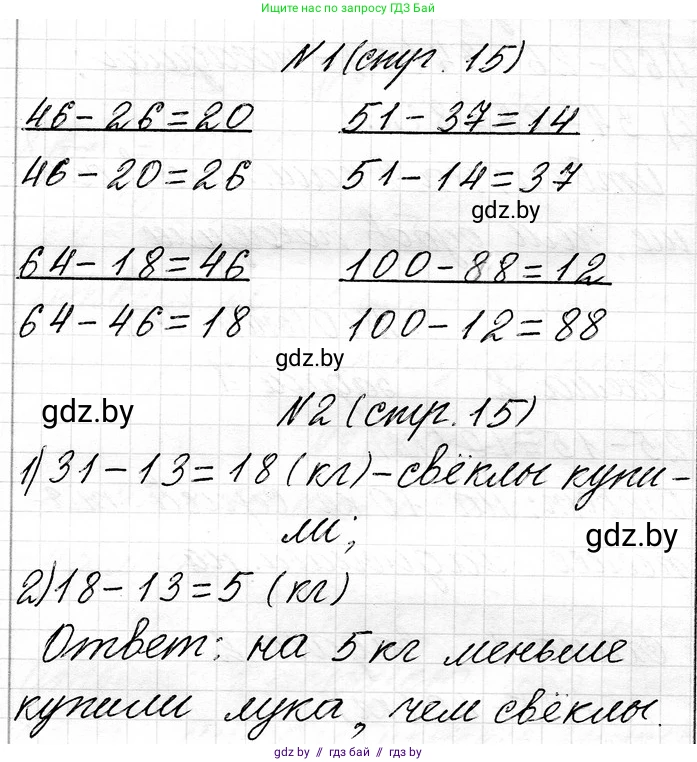 Ищите нас по запросу ГДЗ Бай
N1 (стр. 15)
46-26=20 51-37=14
46-20=26 51-14=37
gdz.by
64-18=46 100-88=12
64-46=18 100-12=88
gdz.by
gdz.by N2 (стр. 15)
1) 31-13=18 (кг) - свёклы купи-
ли;
gdz.by
2) 18-13=5 (кг)
Ответ: на 5 кг меньше
купили лука, чем свёклы.
gdz by // гдз бай // гдз by